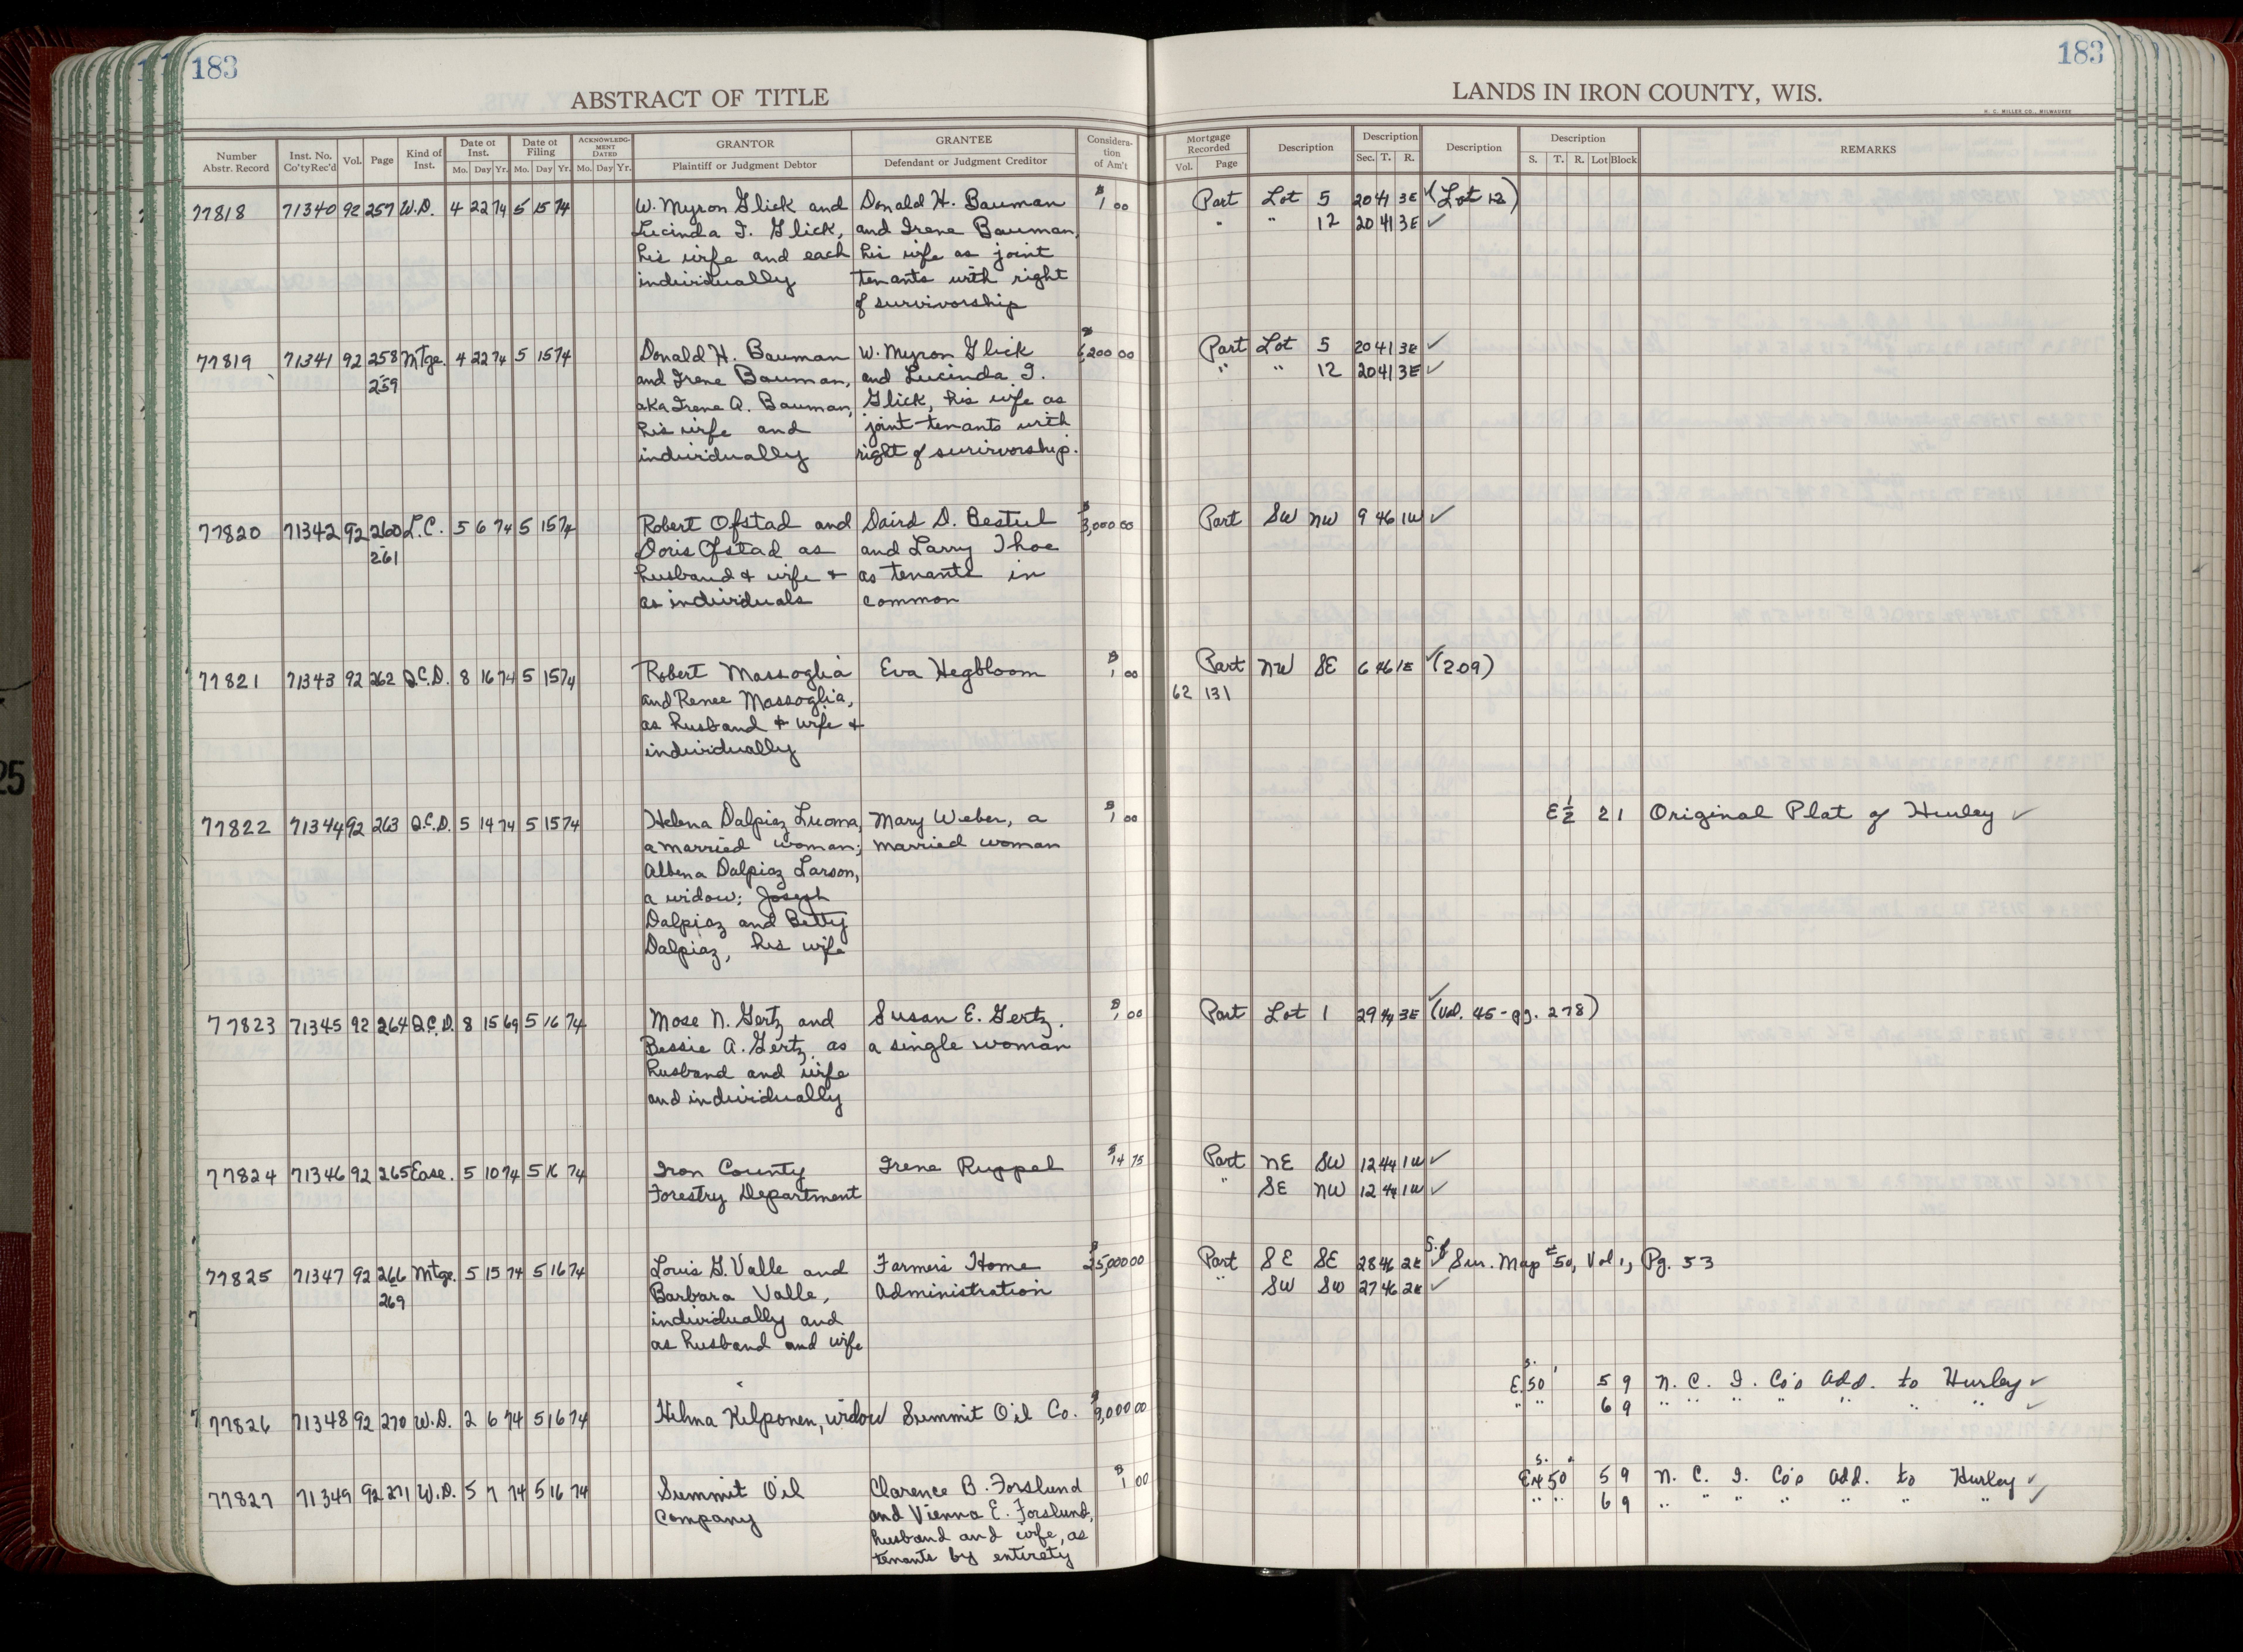 183
ABSTRACT OF TITLE
Number Abstr. Record | Inst. No. Co'ty Rec'd | Vol. | Page | Kind of Inst. | Date of Inst. Mo. Day Yr. | Date of Filing Mo. Day Yr. | ACKNOWLEDGMENT DATED Mo. Day Yr. | GRANTOR Plaintiff or Judgment Debtor | GRANTEE Defendant or Judgment Creditor | Consideration of Am't
77818 71340 92 257 W.D. 4 22 74 5 15 74 W. Myron Glick and Donald H. Bauman $1 00
Lucinda I. Glick, and Irene Bauman,
his wife and each his wife as joint
individually tenants with right
of survivorship
77819 71341 92 258 Mtge. 4 22 74 5 15 74 Donald H. Bauman W. Myron Glick $6,200 00
259 and Irene Bauman, and Lucinda I.
aka Irene A. Bauman, Glick, his wife as
his wife and joint tenants with
individually right of survivorship.
77820 71342 92 260 L.C. 5 6 74 5 15 74 Robert Ofstad and David D. Bestul $3,000 00
261 Doris Ofstad as and Larry Thoe
husband & wife & as tenants in
as individuals common
77821 71343 92 262 Q.C.D. 8 16 74 5 15 74 Robert Massoglia Eva Hegbloom $1 00
and Renee Massoglia,
as husband & wife &
individually
77822 71344 92 263 Q.C.D. 5 14 74 5 15 74 Helena Dalpiaz Luoma, Mary Weber, a $1 00
a married woman; married woman
Albena Dalpiaz Larson,
a widow; Joseph
Dalpiaz and Betty
Dalpiaz, his wife
77823 71345 92 264 Q.C.D. 8 15 69 5 16 74 Mose N. Gertz and Susan E. Gertz, $1 00
Bessie A. Gertz, as a single woman
husband and wife
and individually
77824 71346 92 265 Ease. 5 10 74 5 16 74 Iron County Irene Ruppel $14 75
Forestry Department
77825 71347 92 266 Mtge. 5 15 74 5 16 74 Louis G. Valle and Farmers Home $25,000 00
269 Barbara Valle, Administration
individually and
as husband and wife
77826 71348 92 270 W.D. 2 6 74 5 16 74 Hilma Kilponen, widow Summit Oil Co. $9,000 00
77827 71349 92 271 W.D. 5 7 74 5 16 74 Summit Oil Clarence B. Forslund $1 00
Company and Vienna E. Forslund,
husband and wife, as
tenants by entirety
183
LANDS IN IRON COUNTY, WIS.
H. C. MILLER CO., MILWAUKEE
Mortgage Recorded Vol. Page | Description | Description Sec. T. R. | Description | Description S. T. R. Lot Block | REMARKS
Part Lot 5 20 41 3E ✓ (Lot 12)
" " 12 20 41 3E ✓
Part Lot 5 20 41 3E ✓
" " 12 20 41 3E ✓
Part SW NW 9 46 1W ✓
Part NW SE 6 46 1E ✓ (209)
62 131
E 1/2 2 1 Original Plat of Hurley ✓
Part Lot 1 29 44 3E ✓ (Vol. 45 - pg. 278)
Part NE SW 12 44 1W ✓
" SE NW 12 44 1W ✓
Part SE SE 28 46 2E ✓ Sur. Map #50, Vol 1, Pg. 53
" SW SW 27 46 2E ✓
S.
E. 50' 5 9 N. C. I. Co's Add. to Hurley ✓
" " 6 9 " " " " " " " ✓
S.
50' 5 9 N. C. I. Co's Add. to Hurley ✓
" " 6 9 " " " " " " " ✓
25